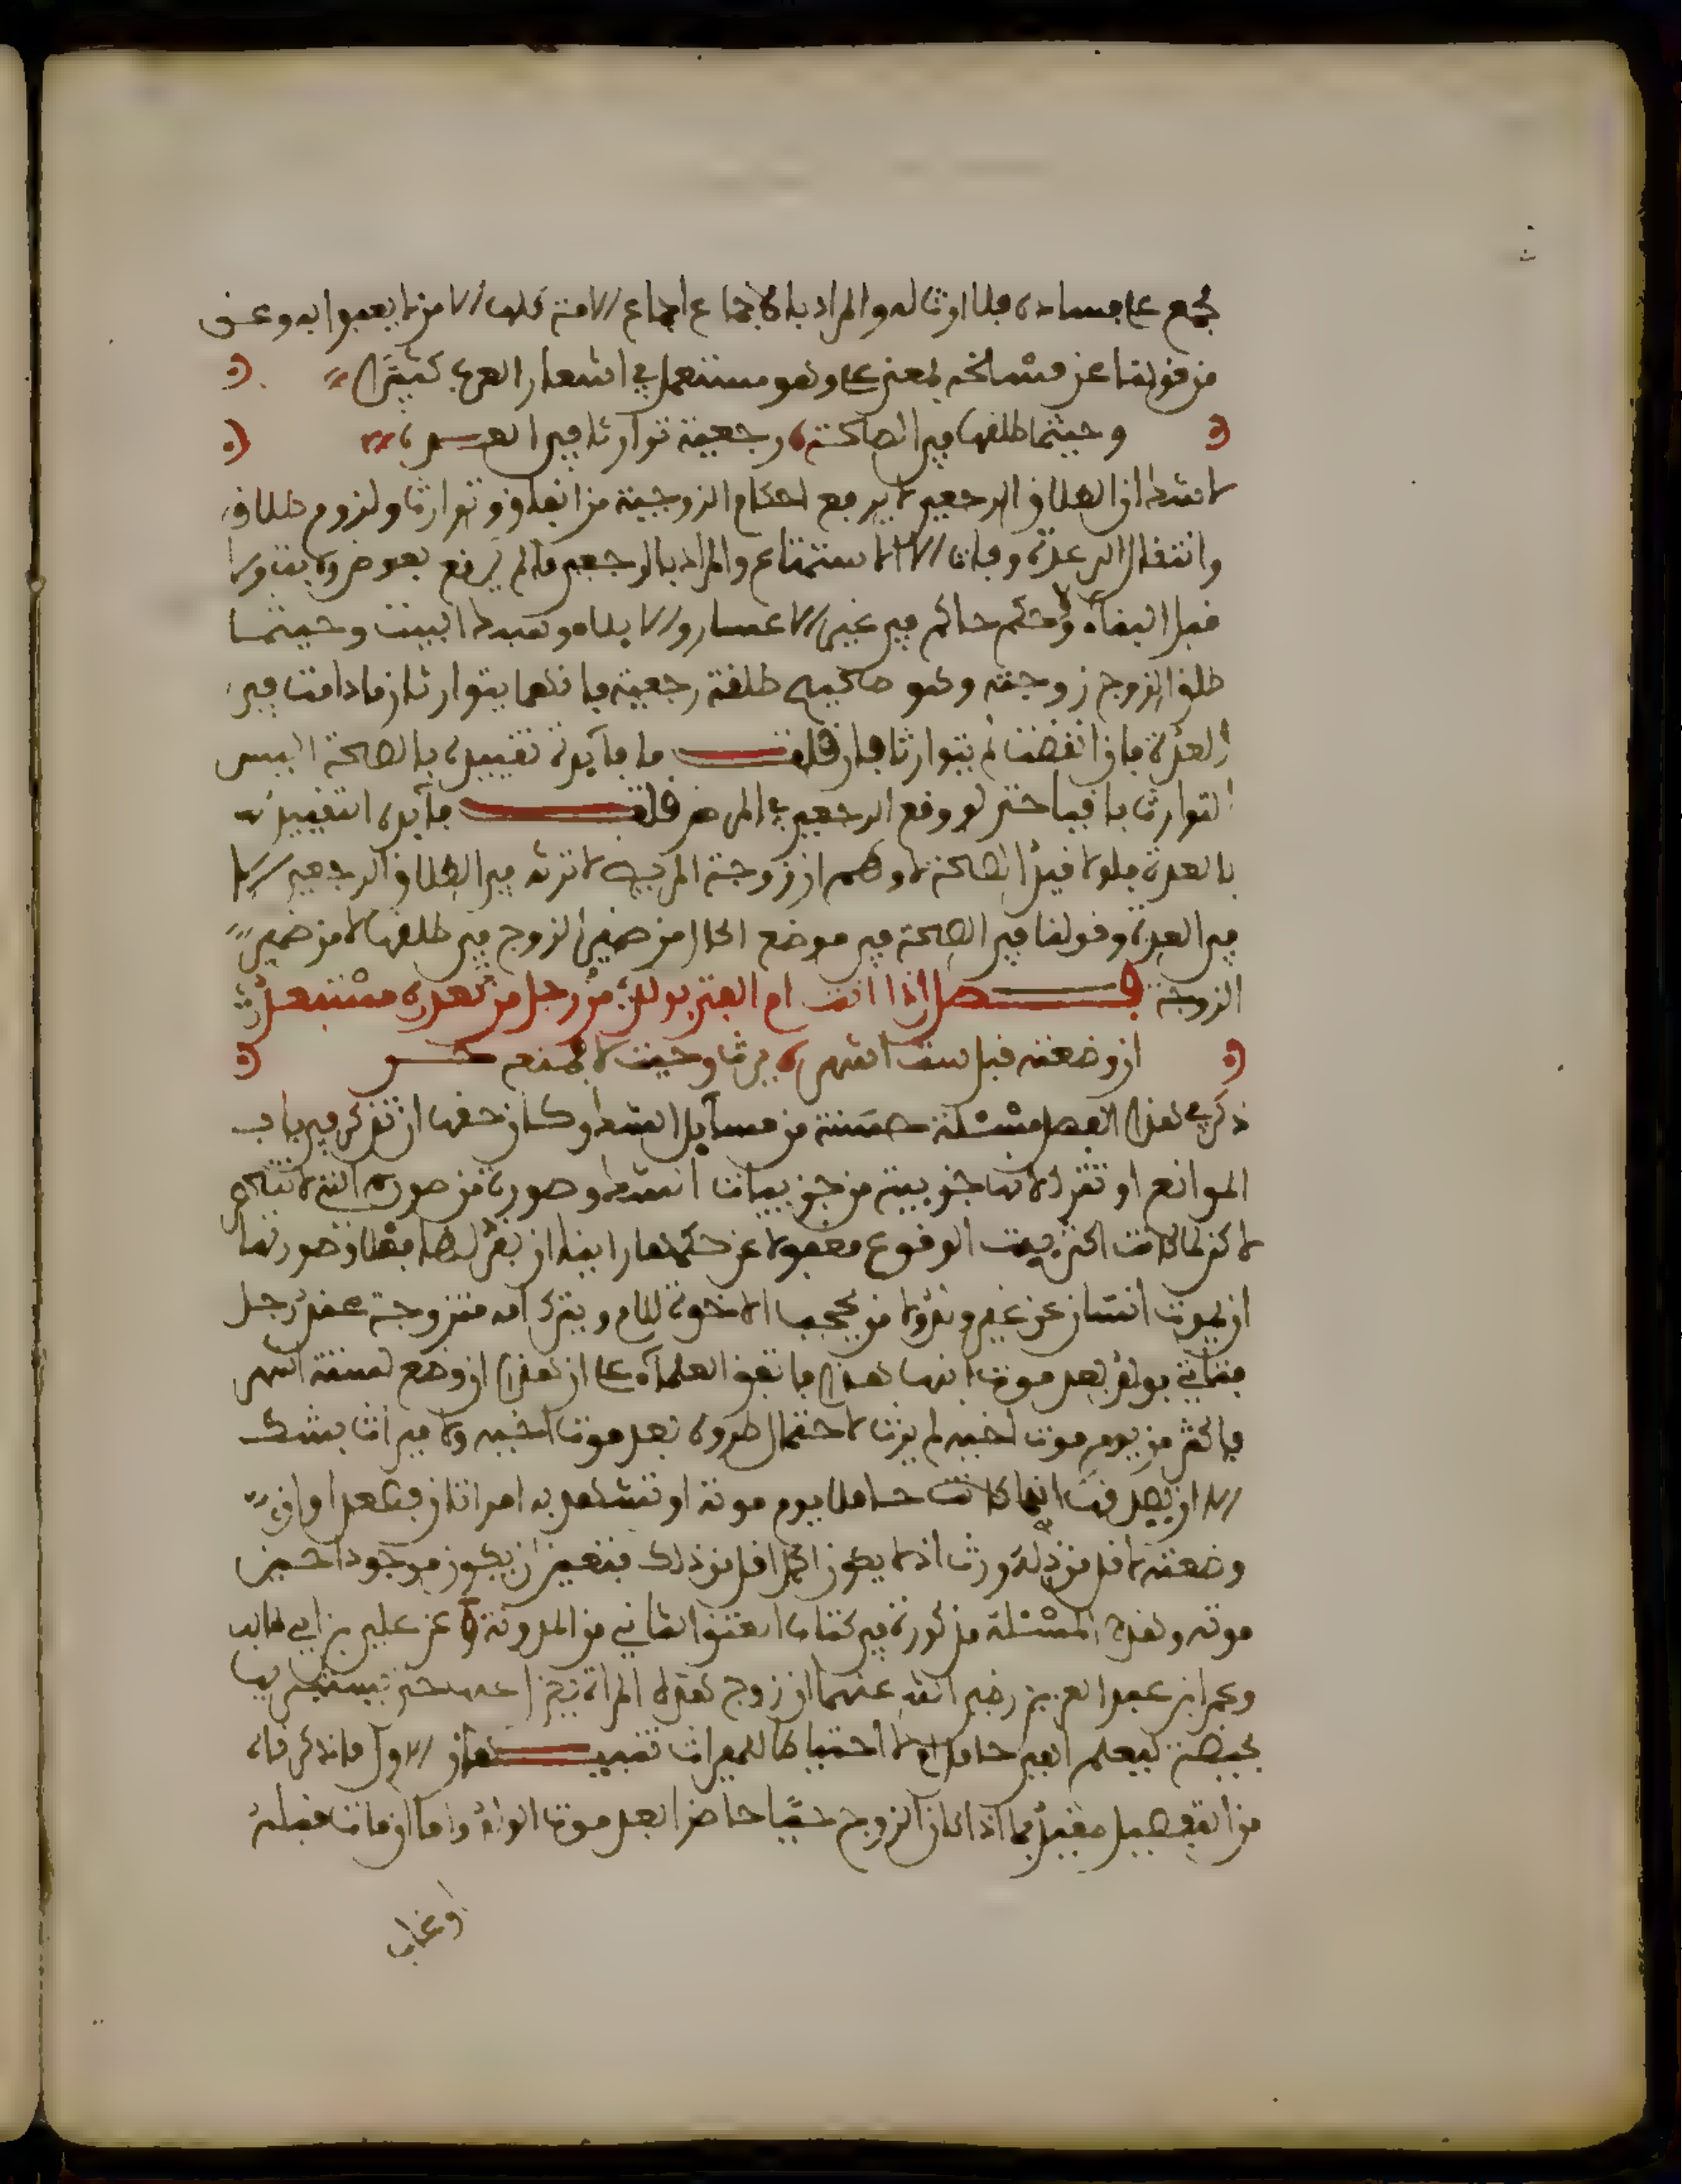 مجمع على فساده فلا ارث له والمراد بالاجماع اجماع الامة كلها الا من لا يعبوا به وعن
من قولنا عن فسخه بمعنى على وهو مستعمل في اشعار العرب كثيرا
وحيثما طلقها في الصحة رجعية توارثا في العدة
لا شك ان الطلاق الرجعي لا يرفع احكام الزوجية من انفاق وتوارث ولزوم طلاق
وانتقال الى عدة وفاة الا الاستمتاع والمراد بالرجعي ما لم يرفع بعوض ولا بتات ولا
قبل البناء ولا حكم حاكم في غير الاعسار والايلاء ومعنى البيت وحيثما
طلق الزوج زوجته وهو صحيح طلقة رجعية فانهما يتوارثان ما دامت في
العدة فان انقضت لم يتوارثا فان قلت ما فائدة تقييده بالصحة اليس
التوارث باقيا حتى لو وقع الرجعي في المرض قلت فائدة التقييد
بالعدة فلولا قيد الصحة لاوهم ان زوجة المريض لا ترثه في الطلاق الرجعي الا
في العدة وقولنا في الصحة في موضع الحال من ضمير الزوج في طلقها لا من ضمير
الزوجة فصل اذا اتت ام الفتى بولد من رجل من بعده مستبعد
ان وضعته قبل ست اشهر يرث وحيث لا يمنع
ذكر في هذا الفصل مسئلة حسنة من مسائل الشك وكان حقها ان تذكر في باب
الموانع او تترك لانها جزيية من جزييات الشك وصورة من صوره التي لا تنحصر
لاكن لما كانت اكثرية الوقوع مغفولا عن حكمها راينا ان نفرد لها فصلا وصورتها
ان يموت انسان عن غير ولد ولا من يحجب الاخوة للام ويترك امه متزوجة عند رجل
فتاتي بولد بعد موت ابنها هذا فاتفق العلماء على ان هذا ان وضع لستة اشهر
فاكثر من يوم موت اخيه لم يرث لاحتمال طروه بعد موت اخيه ولا ميراث بشك
الا ان يصدقت انها كانت حاملا يوم موته او تشهد به امراتان فصعدا وان
وضعته لاقل من ذلك ورث اذ لا يكون الحمل اقل من ذلك فتعين ان يكون موجودا حين
موته وهذه المسئلة مذكورة في كتاب العتق الثاني من المدونة عن علي بن ابي طالب
وعمر ابن عبد العزيز رضي الله عنهما ان زوج هذه المراة ينعزل عنها حتى يستبريها
بحيضة ليعلم اهي حامل ام لا احتياطا للميراث تنبيهان الاول ما ذكرناه
من التفصيل مقيد بما اذا كان الزوج حيا حاضرا بعد موت الولد واما ان مات قبله
او غاب